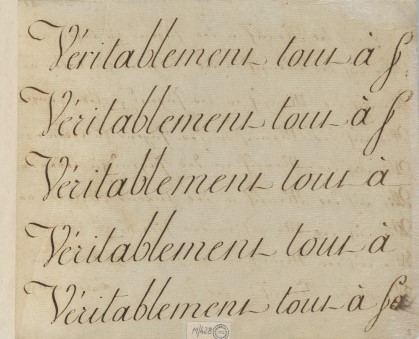 Véritablement tout à f
Véritablement tout à f
Véritablement tout à
Véritablement tout à
Véritablement tout à fa